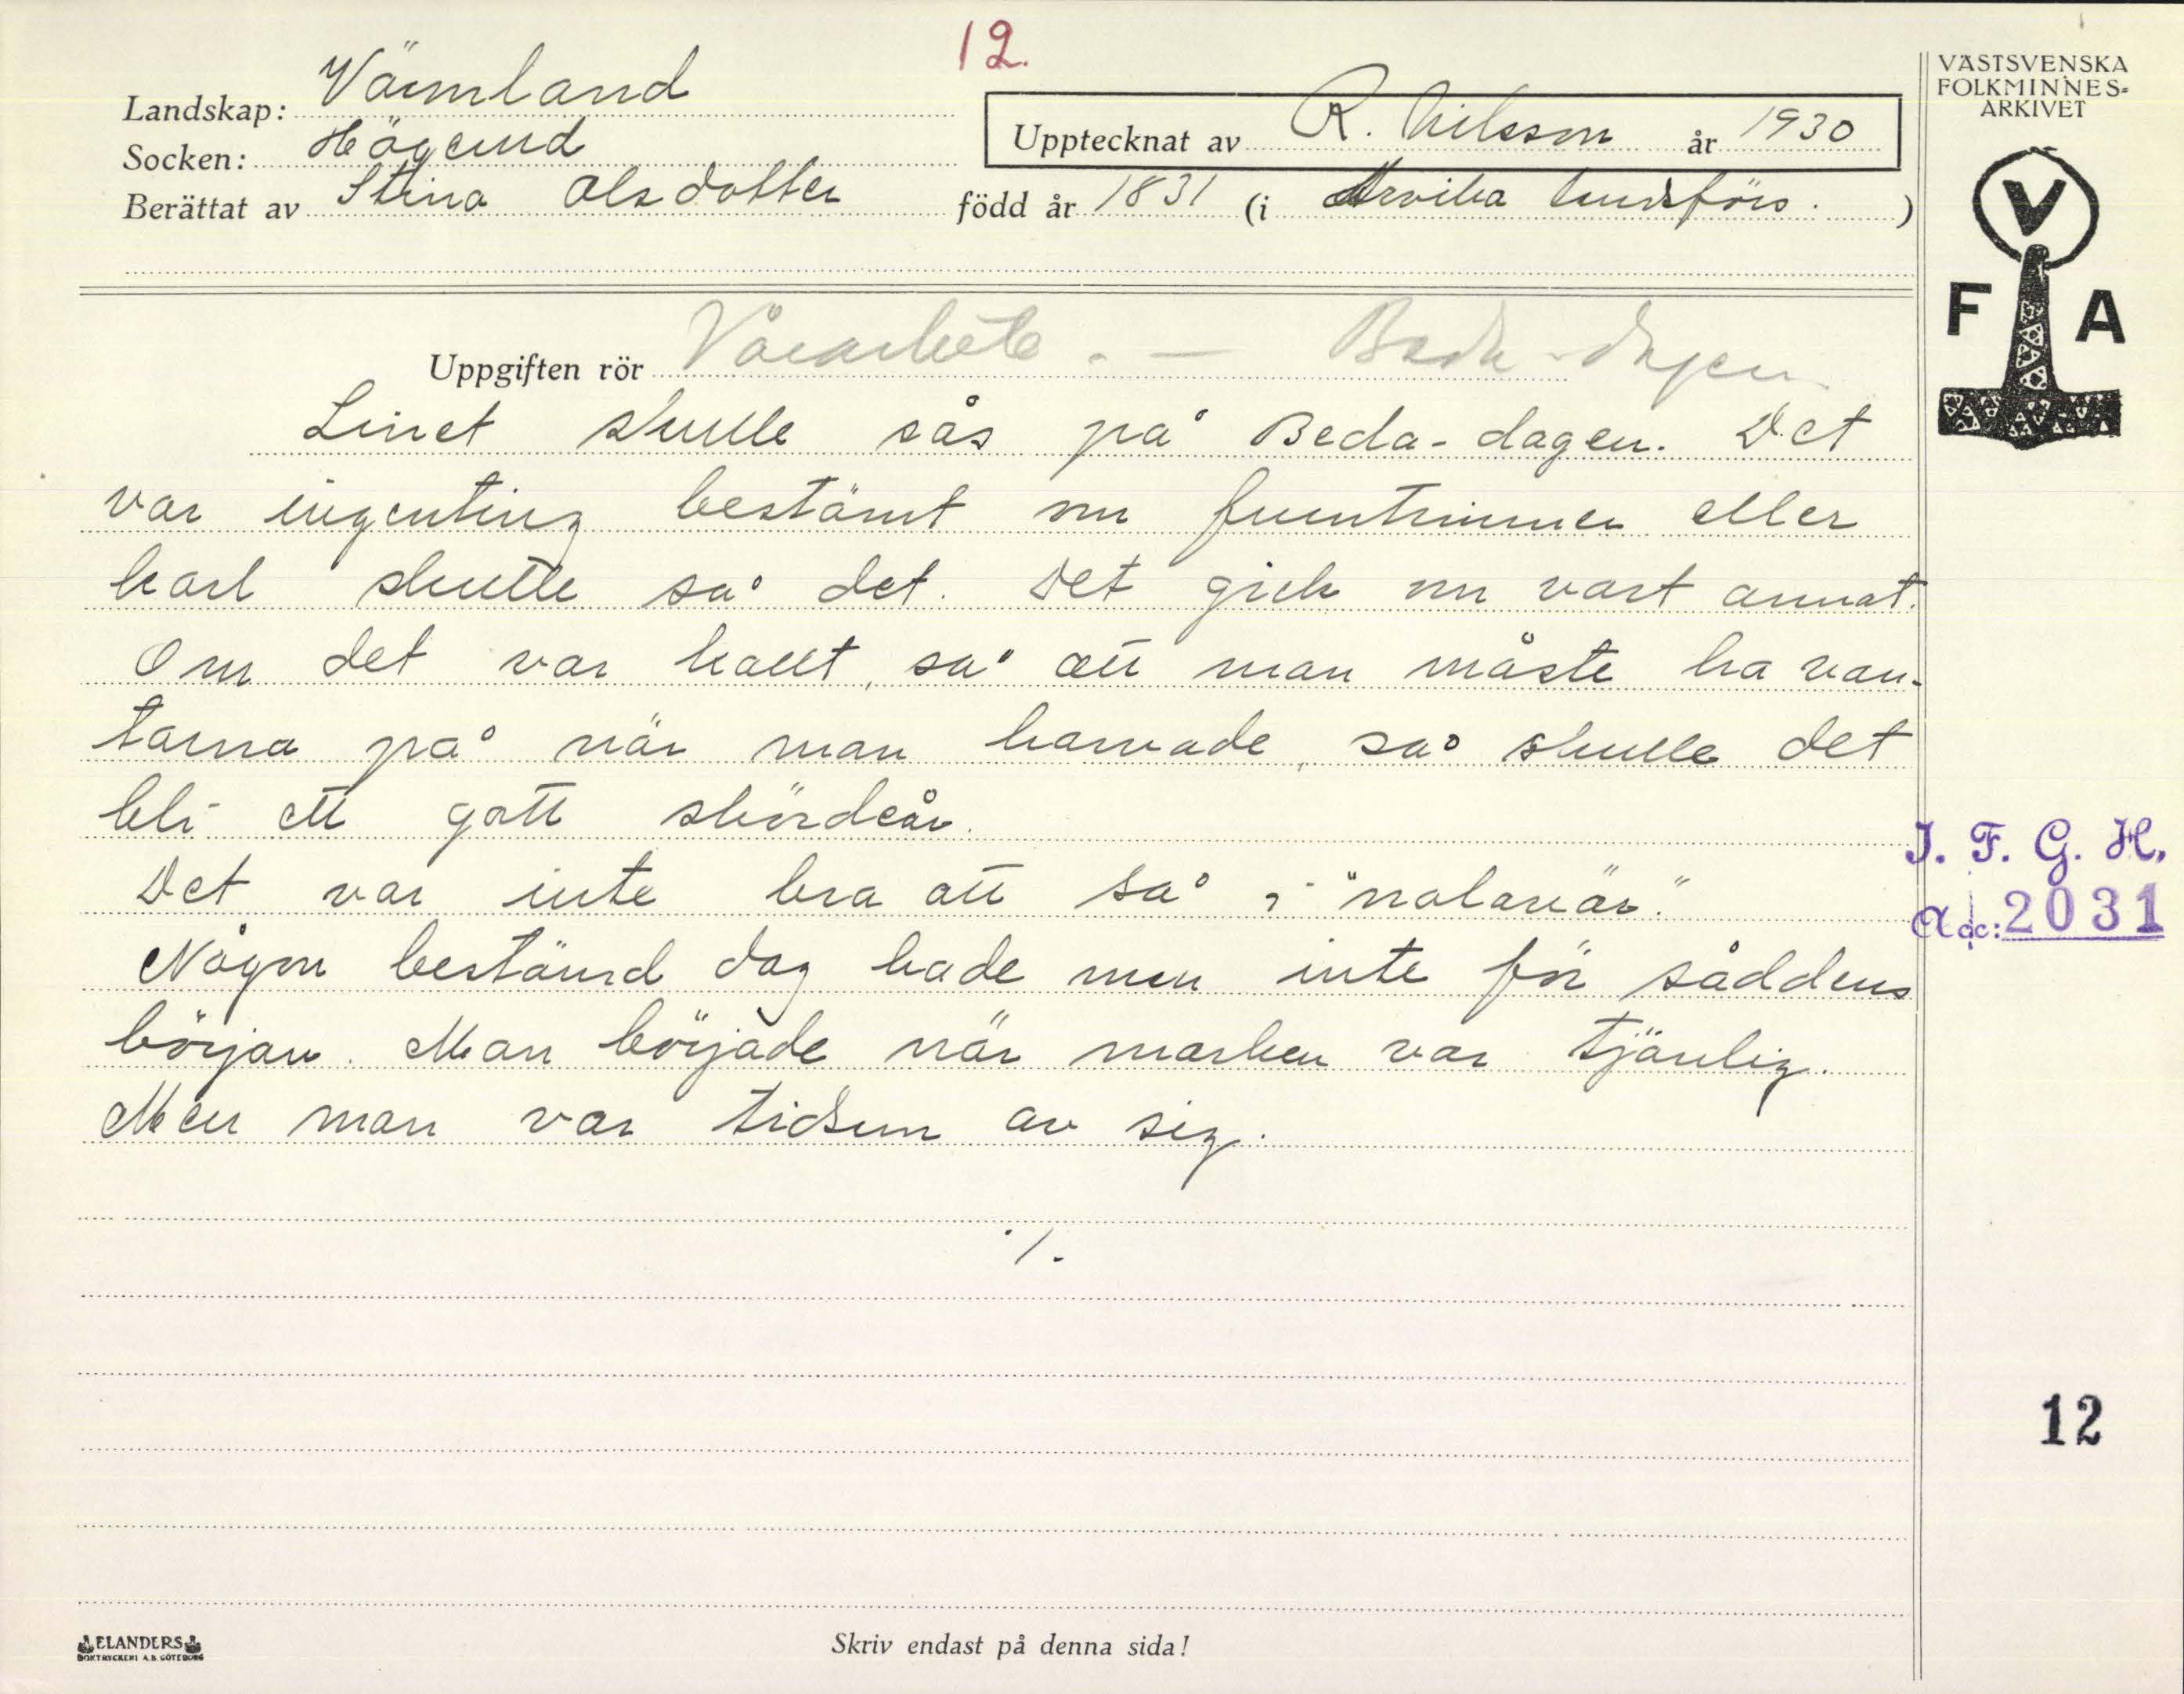 12.
Landskap: Värmland
Socken: Högerud
Berättat av Stina Olsdotter född år 1831 (i Arvika landsförs.)
Upptecknat av R. Nilsson år 1930
VÄSTSVENSKA
FOLKMINNES-
ARKIVET
V
F A
Uppgiften rör Vårarbete. — Beda-dagen.
Linet skulle sås på Beda-dagen. Det
var ingenting bestämt om fruntimmer eller
karl skulle så det. Det gick om vart annat.
Om det var kallt, så att man måste ha van-
tarna på när man harvade, så skulle det
bli ett gott skördeår.
Det var inte bra att så i "nolavär."
Någon bestämd dag hade man inte för såddens
början. Man började när marken var tjänlig.
Men man var tidsam av sig.
./.
I. F. G. H.
Acc: 2031
12
ELANDERS
BOKTRYCKERI A.B. GÖTEBORG
Skriv endast på denna sida!